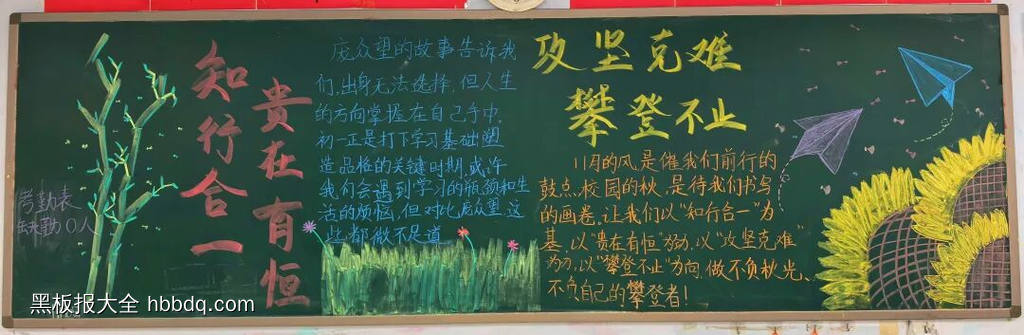 知行合一
贵在有恒
庞众望的故事告诉我
们,出身无法选择,但人生
的方向掌握在自己手中.
初一正是打下学习基础,塑
造品格的关键时期,或许
我们会遇到学习的瓶颈和生
活的烦恼,但对比庞众望,这
些都微不足道
攻坚克难
攀登不止
11月的风,是催我们前行的
鼓点,校园的秋,是待我们书写
的画卷。让我们以“知行合一”为
基,以“贵在有恒”为动,以“攻坚克难”
为刃,以“攀登不止”为向,做不负秋光、
不负自己的攀登者!
考勤表
缺勤0人
黑板报大全 hbbdq.com